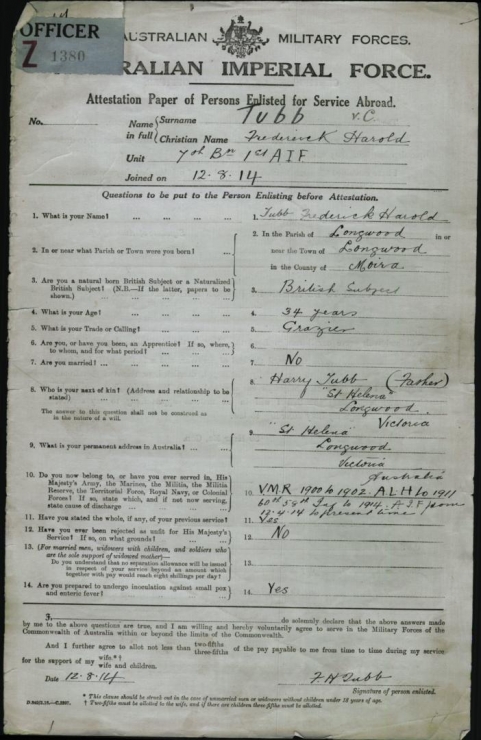 OFFICER
Z 1380
AUSTRALIAN MILITARY FORCES.
AUSTRALIAN IMPERIAL FORCE.
Attestation Paper of Persons Enlisted for Service Abroad.
No. Name in full { Surname Tubb V.C.
Christian Name Frederick Harold
Unit 7th Bn 1st A I F
Joined on 12.8.14
Questions to be put to the Person Enlisting before Attestation.
1. What is your Name? ... ... ... ... 1. Tubb Frederick Harold
2. In or near what Parish or Town were you born? ... 2. In the Parish of Longwood in or
near the Town of Longwood
in the County of Moira
3. Are you a natural born British Subject or a Naturalized
British Subject? (N.B.—If the latter, papers to be
shown.) ... 3. British Subject
4. What is your Age? ... ... ... ... 4. 34 years
5. What is your Trade or Calling? ... ... ... 5. Grazier
6. Are you, or have you been, an Apprentice? If so, where,
to whom, and for what period? ... ... 6.
7. Are you married? ... ... ... ... 7. No
8. Who is your next of kin? (Address and relationship to be
stated) 8. Harry Tubb (Father)
"St Helena"
Longwood
Victoria
The answer in this question shall not be construed as
in the nature of a will.
9. What is your permanent address in Australia? ... 9. "St Helena"
Longwood
Victoria
Australia
10. Do you now belong to, or have you ever served in, His
Majesty's Army, the Marines, the Militia, the Militia
Reserve, the Territorial Force, Royal Navy, or Colonial
Forces? If so, state which, and if not now serving,
state cause of discharge ... 10. V.M.R. 1900 to 1902. A L H to 1911
60th 58th Inf to 1914. A I F from
12.4.14 to present time.
11. Have you stated the whole, if any, of your previous service? 11. Yes
12. Have you ever been rejected as unfit for His Majesty's
Service? If so, on what grounds? ... ... 12. No
13. (For married men, widowers with children, and soldiers who
are the sole support of widowed mother)—
Do you understand that no separation allowance will be issued
in respect of your service beyond an amount which
together with pay would reach eight shillings per day? 13.
14. Are you prepared to undergo inoculation against small pox
and enteric fever? ... 14. Yes
3. do solemnly declare that the above answers made
by me to the above questions are true, and I am willing and hereby voluntarily agree to serve in the Military Forces of the
Commonwealth of Australia within or beyond the limits of the Commonwealth.
And I further agree to allot not less than two-fifths three-fifths of the pay payable to me from time to time during my service
for the support of my wife.*†
wife and children.
Date 12.8.14 F H Tubb
Signature of person enlisted.
* This clause should be struck out in the case of unmarried men or widowers without children under 18 years of age.
† Two-fifths must be allotted to the wife, and if there are children three-fifths must be allotted.